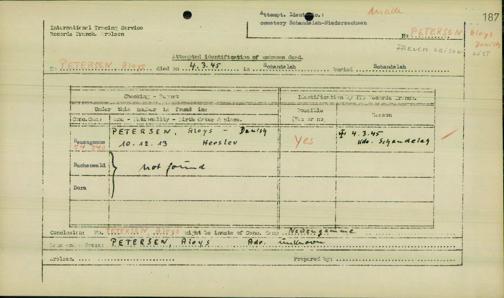 187
International Tracing Service
Records Branch, Arolsen
Attempt. Ident. No.:
cemetery Schandelah-Niedersachsen
No PETERSEN Aloys
Danish
Attempted identification of unknown dead.
No. PETERSEN Aloys died on 4.3.45 in Schandelah buried Schandelah
Checking - Report
Identification by the Records Branch.
Under this number is found in:
Conc.Camp: Name - Nationality - Birth date & place.
Possible (Yes or no)
Reason
Neuengamme
PETERSEN, Aloys - Danish
10.12.13 Herslev
Yes
✝ 4.3.45
Kdo. Schandelah
Buchenwald
not found
Dora
Conclusion No. PETERSEN Aloys might be inmate of Conc. Camp Neuengamme
PETERSEN, Aloys Adr. unknown
Arolsen,
Prepared by: